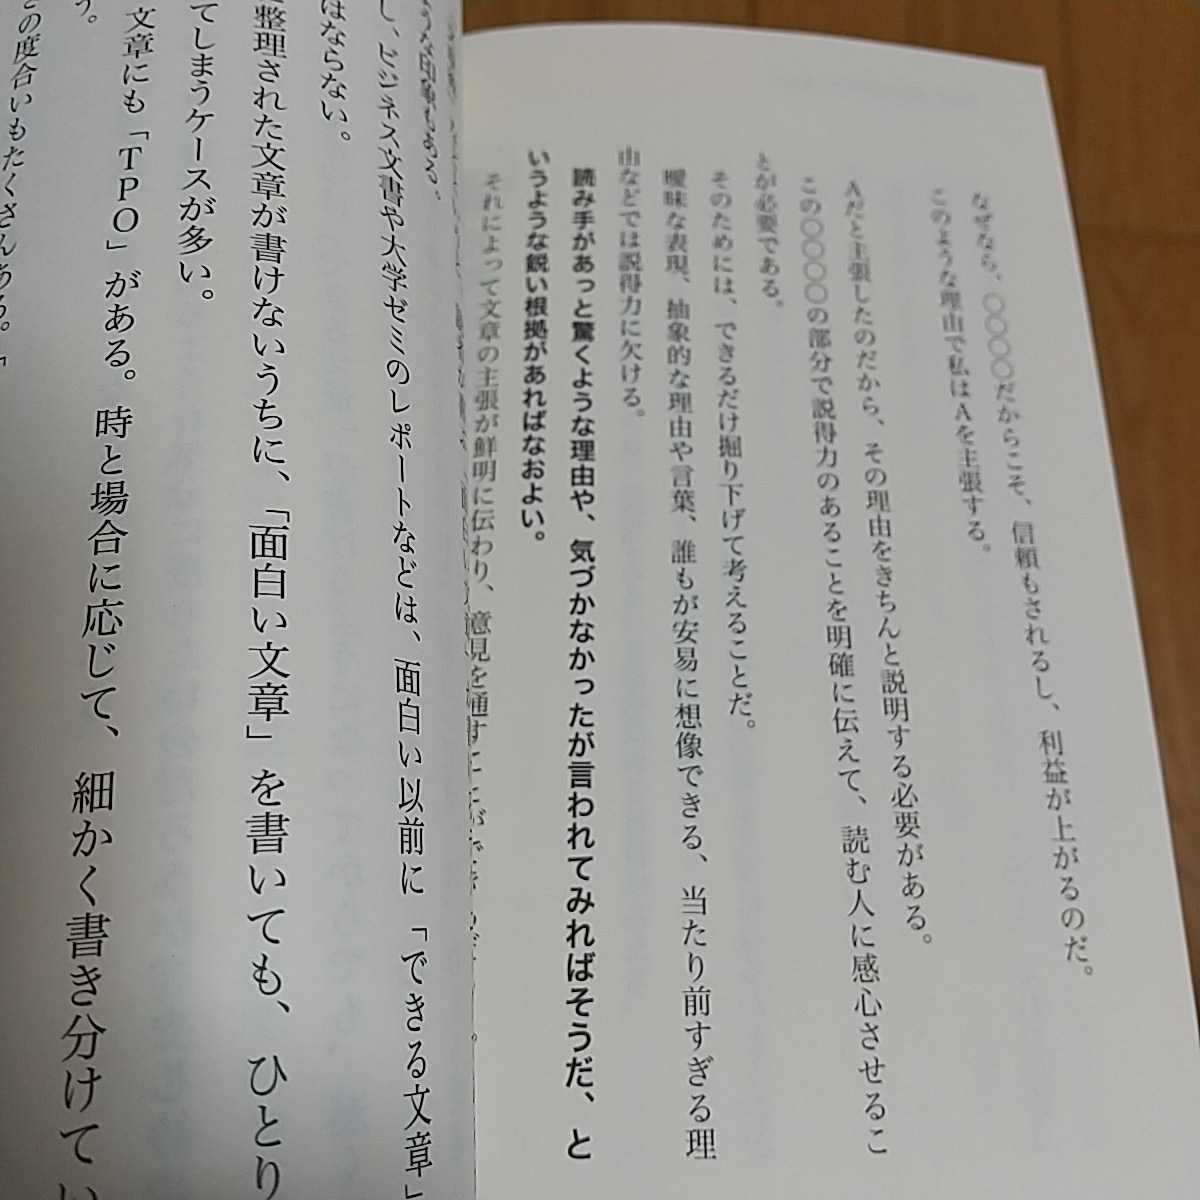 なぜなら、〇〇〇〇だからこそ、信頼もされるし、利益が上がるのだ。
このような理由で私はAを主張する。
Aだと主張したのだから、その理由をきちんと説明する必要がある。
この〇〇〇〇の部分で説得力のあることを明確に伝えて、読む人に感心させるこ
とが必要である。
そのためには、できるだけ掘り下げて考えることだ。
曖昧な表現、抽象的な理由や言葉、誰もが安易に想像できる、当たり前すぎる理
由などでは説得力に欠ける。
読み手があっと驚くような理由や、気づかなかったが言われてみればそうだ、と
いうような鋭い根拠があればなおよい。
それによって文章の主張が鮮明に伝わり、意見を通すことができ
もある。
し、ビジネス文書や大学ゼミのレポートなどは、面白い以前に「できる文章」
はならない。
整理された文章が書けないうちに、「面白い文章」を書いても、ひとり
てしまうケースが多い。
文章にも「TPO」がある。時と場合に応じて、細かく書き分けてい
う。
の度合いもたくさんある。「